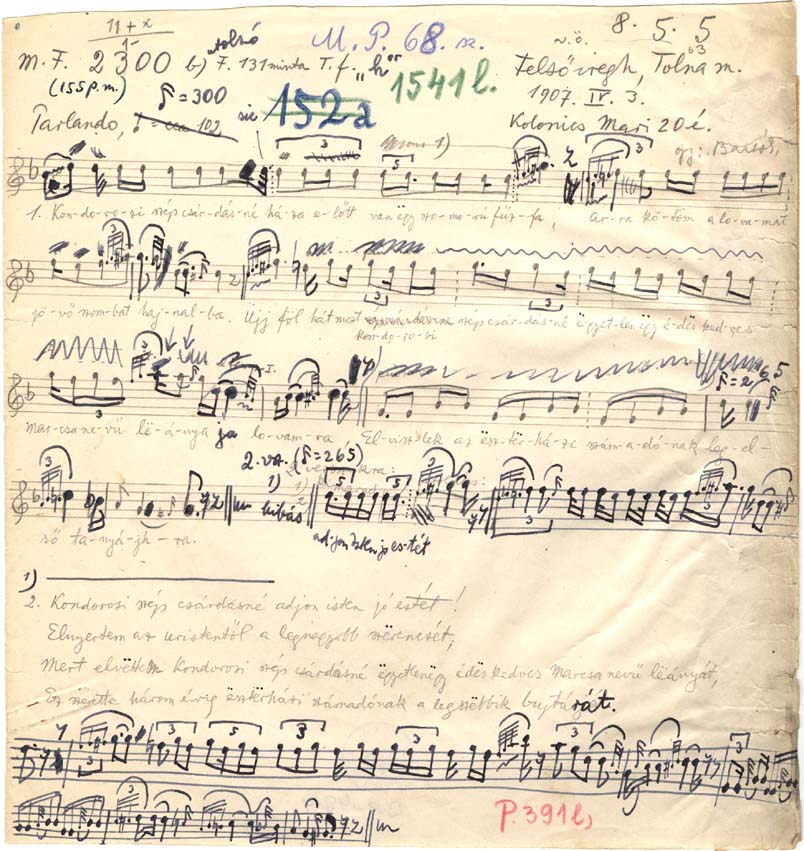 11 + x
utolsó
M. P. 68. sz.
v. ö.
8. 5. 5
b3
M. F. 2300 b) F. 131 minta T. f. "h"
1541 l.
Felsőiregh, Tolna m.
(155 p. m.)
= 300
152a
1907. IV. 3.
Parlando, = 102
Kolonics Mari 20 é.
gy: Bartók
3 5 3
1. Kon-do-ro-si szép csár-dás-né há-za e-lőtt van egy szo-mo-rú fűz-fa, Ar-ra kö-töm a lo-va-mat
jö-vő szom-bat haj-nal-ba. Ülj föl hát most szép csár-dás-né egyet-len egy é-des ked-ves
kon-do-ro-si
mar-csa ne-vű lë-á-nya ja lo-vam-ra El-visz-lek az ësz-tër-há-zi szám-a-dó-nak leg-el-
2. vsz. ( = 265)
1) hibás
ső ta-nyá-já-ra.
adjon Isten jó es-tét
1)
2. Kondorosi szép csárdásné adjon isten jó estét!
Elnyertem az uristentől a legnagyobb szërencsét,
Mert elvëttem Kondorosi szép csárdásné ëgyetlenëgy édes kedves Marcsa nevű lëányát,
Ez szerette három évig ësztërházi számadónak a legszëbbik bujtárát.
P. 391 l,